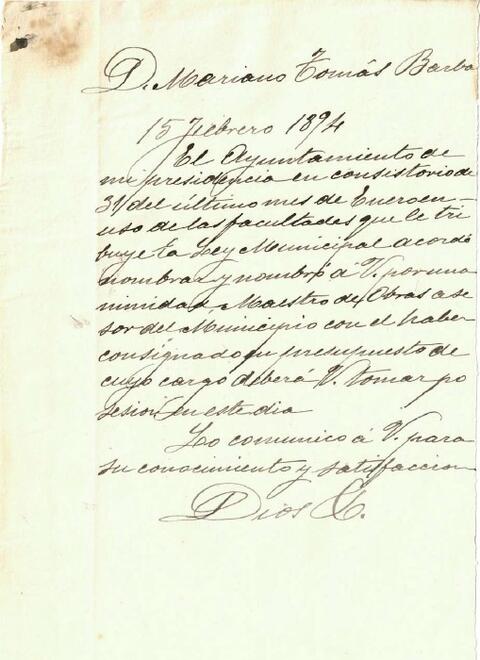 D. Mariano Tomás Barba
15 Febrero 1894
El Ayuntamiento de
mi presidencia en consistorio de
31 del último mes de Enero en
uso de las facultades que le tri
buye la Ley Municipal acordó
nombrar y nombró á V. por una
nimidad, Maestro de Obras ase
sor del Municipio con el haber
consignado en presupuesto de
cuyo cargo deberá V. tomar po
sesión en este dia
Lo comunico á V. para
su conocimiento y satisfaccion
Dios &.